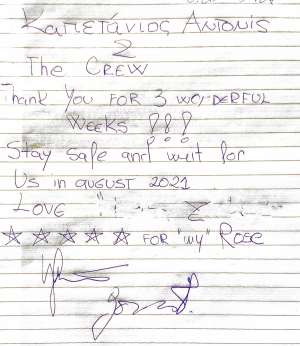 Καπετάνιος Antonis
2
The CREW
Thank You FOR 3 WONDERFUL
WEEKS !!!
Stay Safe and wait for
Us in august 2021
LOVE
☆ ☆ ☆ ☆ ☆ FOR "my" Rose